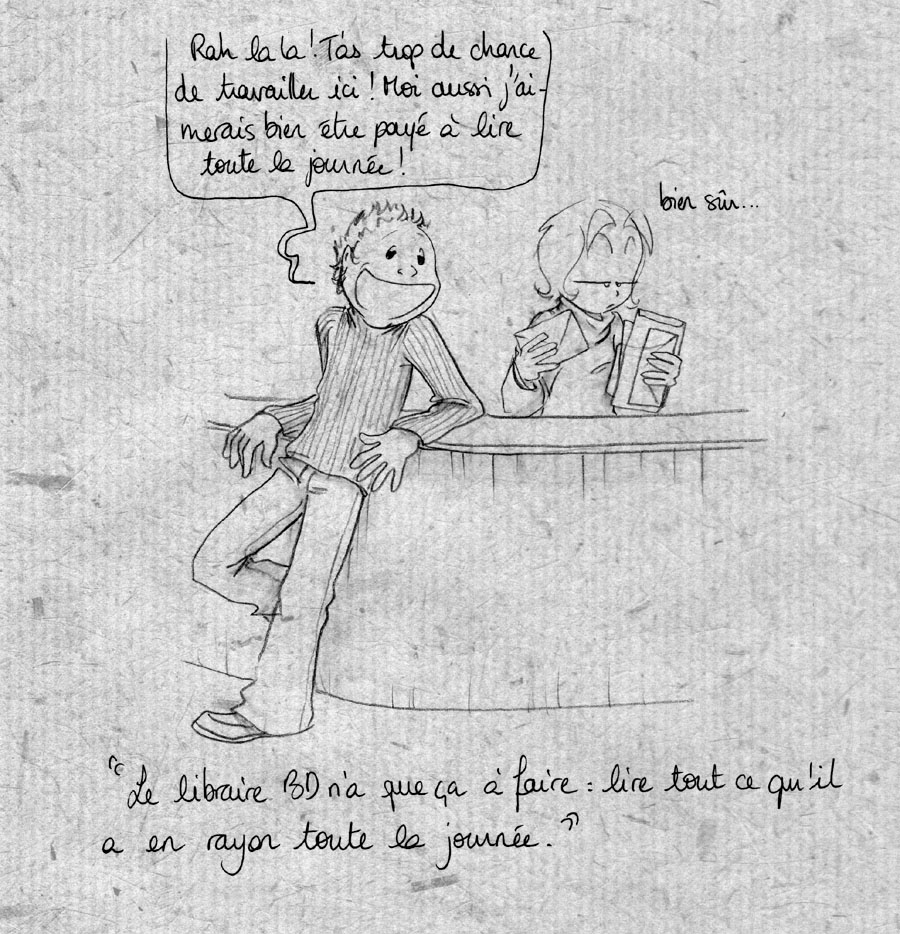 Rah la la ! T'as trop de chance
de travailler ici ! Moi aussi j'ai-
merais bien être payé à lire
toute la journée !
bien sûr...
"Le libraire BD n'a que ça à faire : lire tout ce qu'il
a en rayon toute la journée."